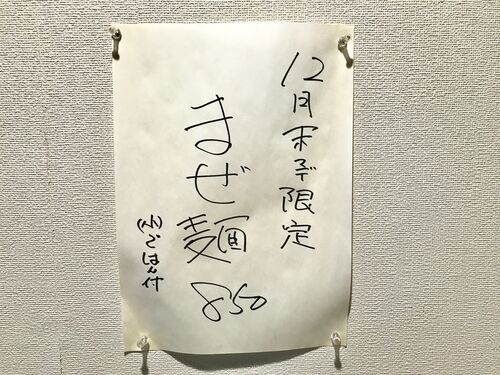 12月末まで限定
まぜ麺
850
(小)ごはん付